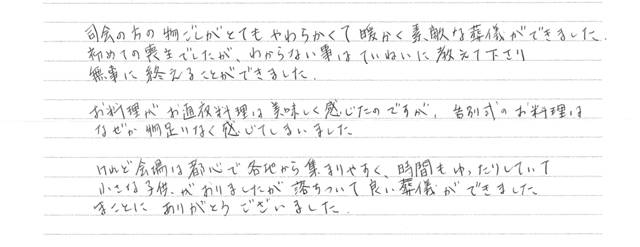 司会の方の物ごしがとてもやわらかくて暖かく素敵な葬儀ができました.
初めての喪主でしたが、わからない事はていねいに教えて下さり
無事に終えることができました.
お料理がお通夜料理は美味しく感じたのですが、告別式のお料理は
なぜか物足りなく感じてしまいました
けれど会場は都心で各地から集まりやすく、時間もゆったりしていて
小さな子供がおりましたが落ちついて良い葬儀ができました
まことにありがとうございました.